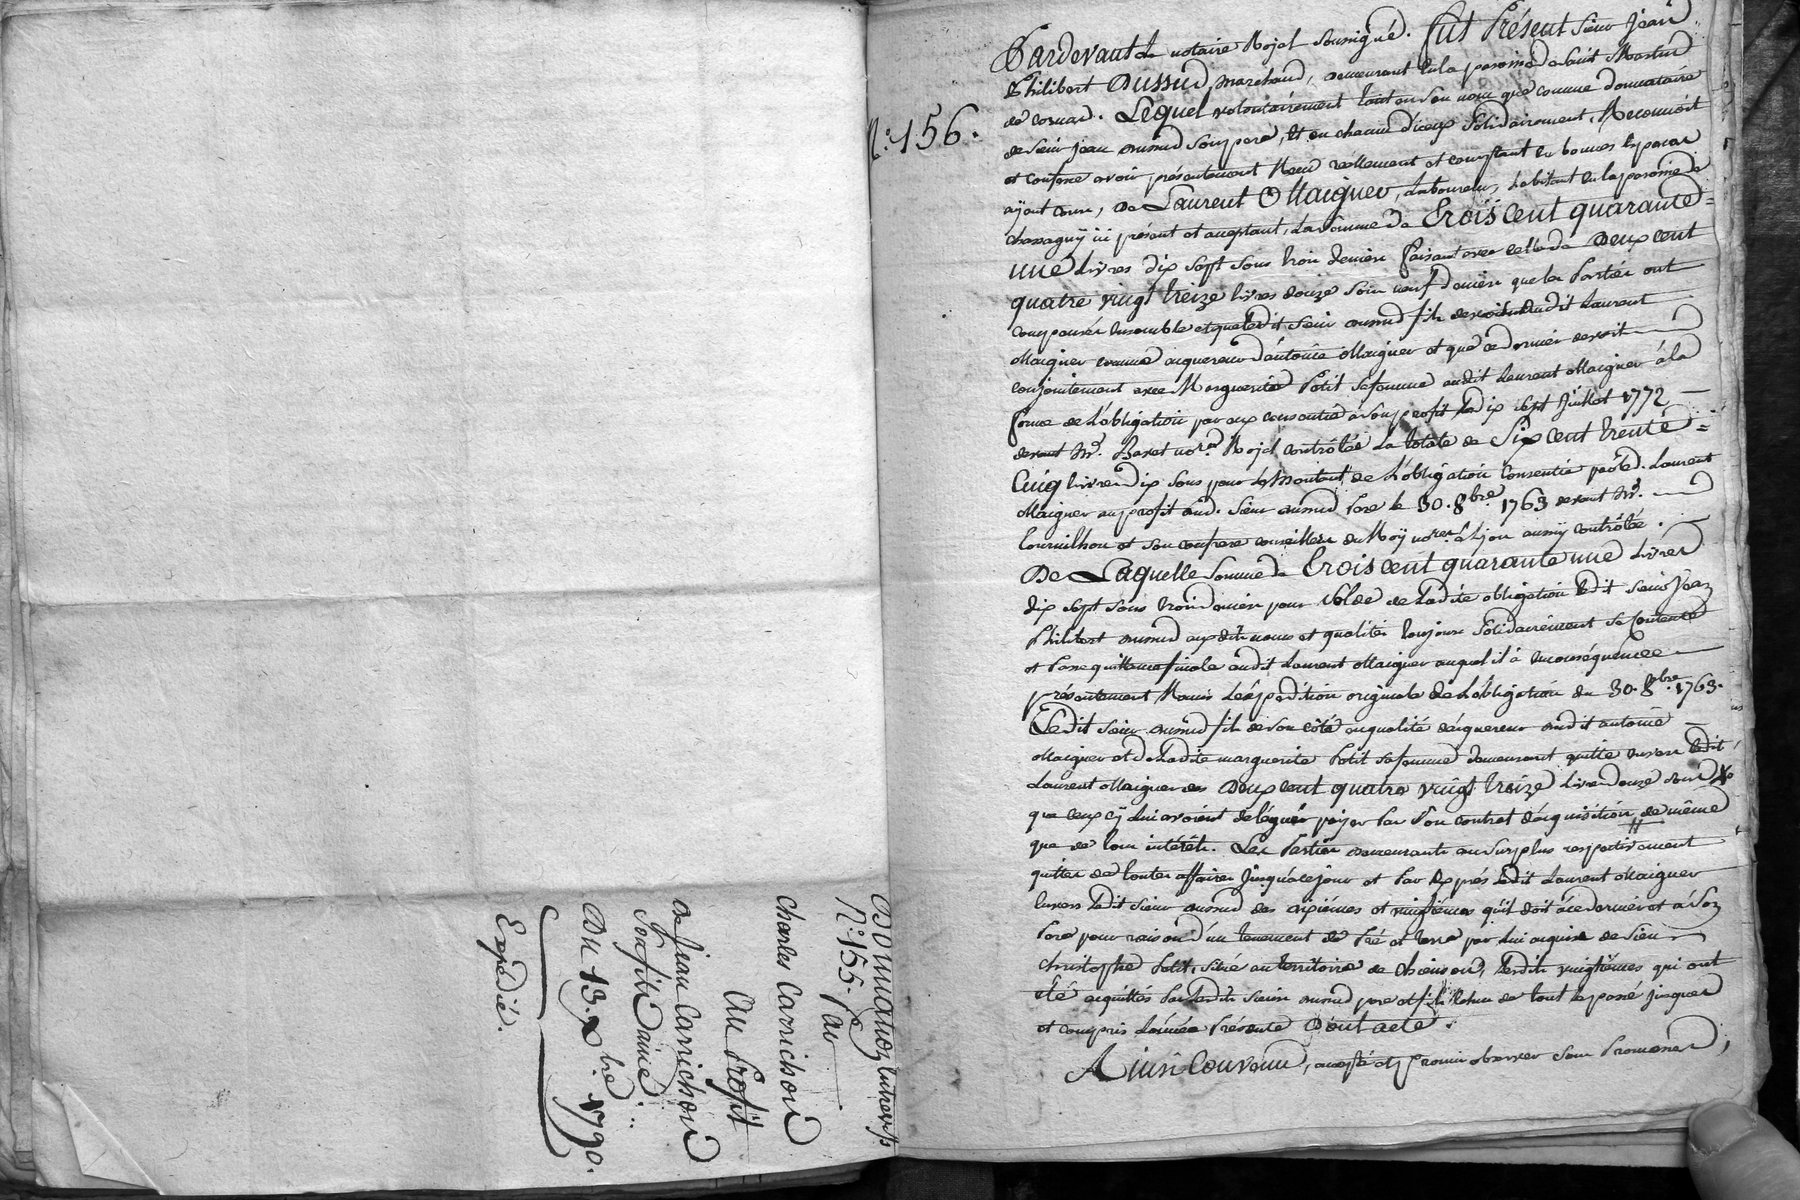 Donnation entrevifs
N.° 155. par
Charles Carrichon
Au Profit
de jean Carrichon
Son fils ainé.
Du 13. Xbre. 1790.
Expédié.
N.° 156.
Pardevant Le notaire Royal soussigné. fut Présent sieur Jean
Philibert Dussud, marchand, demeurant en la paroisse de saint Martin
de cornas. Lequel volontairement tant en son nom que comme donnataire
de sieur jean Dussud son pere, et en chacun d'iceux solidairement, Reconnoit
et confesse avoir présentement Recu réellement et comptant en bonnes especes
ayant cours, de Laurent Maignier, Laboureur, habitant en la paroisse de
chassagny ici présent et acceptant, La somme de Trois cent quarante
une Livres dix sept sous trois deniers faisant avec celle de Deux cent
quatre vingt treize livres douze sous neuf deniers que les Parties ont
compensée ensemble et que ledit sieur Dussud fils devoit audit Laurent
Maignier comme acquereur d'antoine Maignier et que ce dernier devoit
conjointement avec Marguerite Petit sa femme audit Laurent Maignier à la
forme de L'obligation par eux consentie à son profit Le dix sept Juillet 1772
devant Me. notre. Royal contrôlée La totale de Six cent trente
Cinq livres dix sous pour le Montant de L'obligation Consentie par led. Laurent
Maignier au profit dud. sieur Dussud Pere le 30. 8bre. 1763 devant Me.
et son confrere conseillers du Roy notres. à Lyon aussy contrôlée.
De Laquelle somme de Trois cent quarante une Livres
dix sept sous trois deniers pour solde de Ladite obligation ledit sieur Jean
Philibert Dussud auxdits noms et qualités toujours solidairement se contente
et Passe quittance finale audit Laurent Maignier auquel il à en conséquence
présentement Remis L'éxpédition originale de L'obligation du 30. 8bre. 1763.
Ledit sieur Dussud fils de son côté en qualité d'acquereur dudit antoine
Maignier et de Ladite marguerite Petit sa femme demeurant quitte envers Ledit
Laurent Maignier des Deux cent quatre vingt treize Livres douze sous
que ceux cy lui avoient délégués payer Par son contrat d'acquisition, de même
que de leurs intérêts. Les Parties demeurants au surplus respectivement
quittes de toutes affaires jusqu'à ce jour et Par Exprés Ledit Laurent Maignier
envers Ledit sieur Dussud des dixièmes et vingtièmes qu'il doit à ce dernier et à son
Pere pour raison d'un tenement de Pré et terre par lui acquis de sieur
Christophe Petit, situé au territoire de Lesdits vingtièmes qui ont
été acquittés Par Lesdits sieurs Dussud pere et fils de tout le passé jusques
et compris L'année Présente. Dont acte.
Ainsi Convenu, accepté et promis observer sous Promesses,